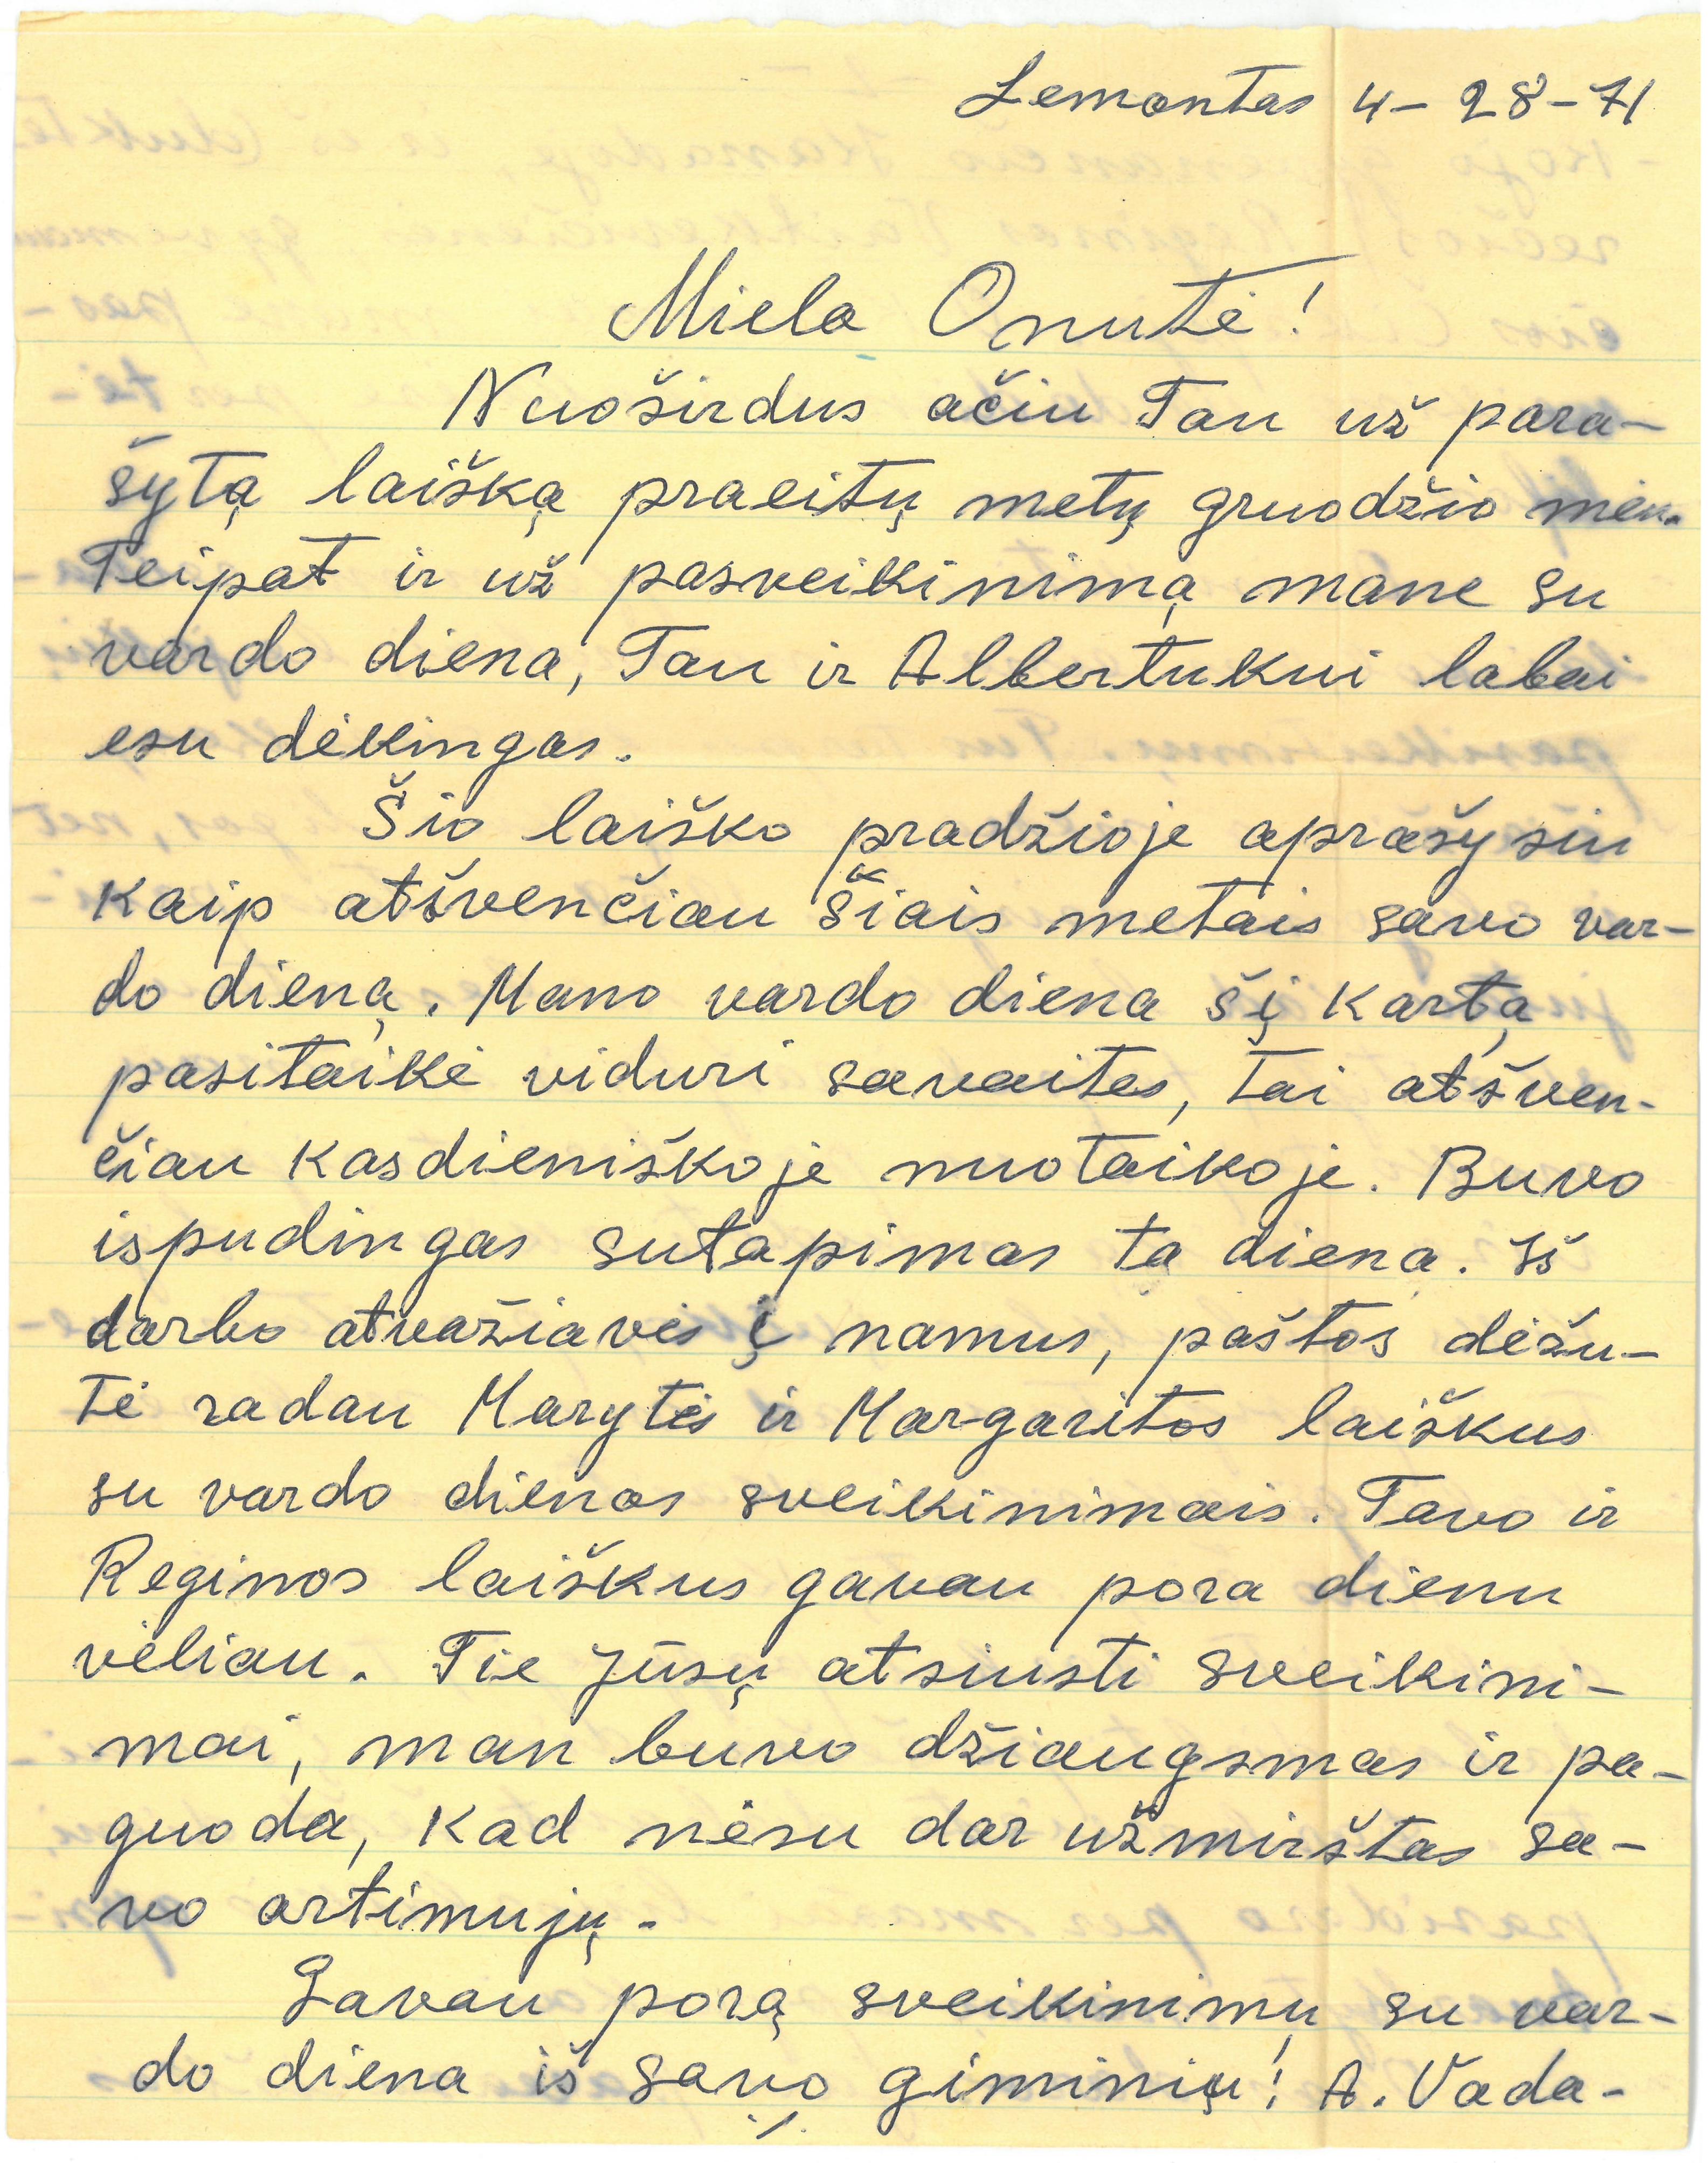 Lemontas 4-28-71
Miela Onutė!
Nuoširdus ačiu Tau už para-
šytą laišką praeitų metų gruodžio mėn.
Teipat ir už pasveikinimą mane su
vardo diena, Tau ir Albertukui labai
esu dėkingas.
Šio laiško pradžioje aprašysiu
kaip atšvenčiau šiais metais savo var-
do dieną. Mano vardo diena šį kartą
pasitaikė viduri savaites, tai atšven-
čiau kasdieniškoje nuotaikoje. Buvo
ispudingas sutapimas tą dieną. Iš
darbo atvažiavęs į namus, paštos dėžu-
tė radau Marytės ir Margaritos laiškus
su vardo dienos sveikinimais. Tavo ir
Reginos laiškus gavau pora dienu
vėliau. Tie Jūsų atsiusti sveikini-
mai, man buvo džiaugsmas ir pa-
guoda, kad nėsu dar užmirštas sa-
vo artimujų.
Gavau porą sveikinimų su var-
do diena iš savo giminių: A. Vada-